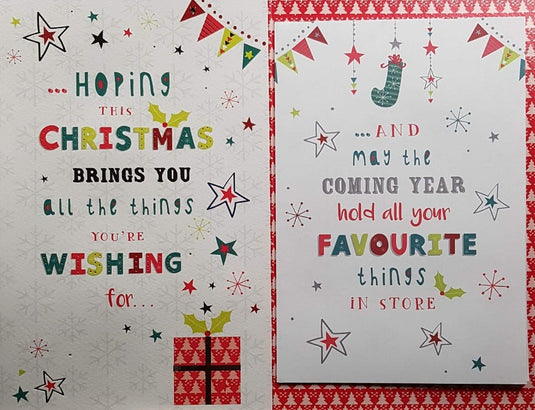 ... HOPING
THIS
CHRISTMAS
BRINGS YOU
all the things
YOU'RE
WISHING
for...
...AND
may the
COMING YEAR
hold all your
FAVOURITE
things
IN STORE